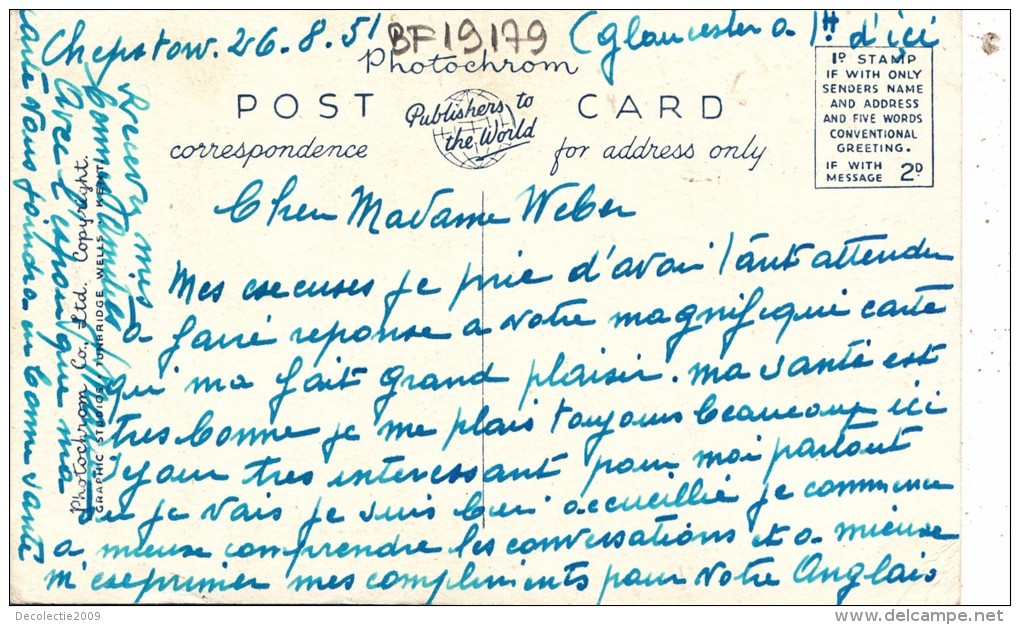 Chepstow. 26.8.51 BF19179 (Gloucester a 1H d'içi
Photochrom
POST CARD
Publishers to the World
correspondence for address only
1D STAMP
IF WITH ONLY
SENDERS NAME
AND ADDRESS
AND FIVE WORDS
CONVENTIONAL
GREETING.
IF WITH
MESSAGE 2D
Cher Madame Weber
Mes excuses je prie d'avoir tant attendu
a faire reponse a votre magnifique carte
qui ma fait grand plaisir. ma santé est
tres bonne je me plais toujours beaucoup ici
sejour tres interessant pour moi partout
ou je vais je suis bien accueillié je commence
a mieuse comprendre les conversations et a mieuse
m'exeprimer mes compliments pour votre Anglais
Recevez mes
bonne
Avec l'espoir que ma
carte vous joindra en bonne santé
Photochrom Co., Ltd. Copyright.
GRAPHIC STUDIOS, TUNBRIDGE WELLS, KENT
Decolectie2009
www.delcampe.net